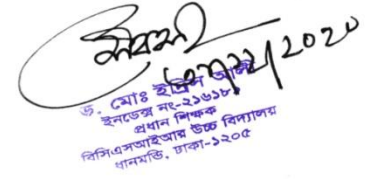 ২০২০
ড. মোঃ ইদ্রিস আলী
ইনডেক্স নং-২১৬১৮
প্রধান শিক্ষক
বিসিএসআইআর উচ্চ বিদ্যালয়
ধানমন্ডি, ঢাকা-১২০৫